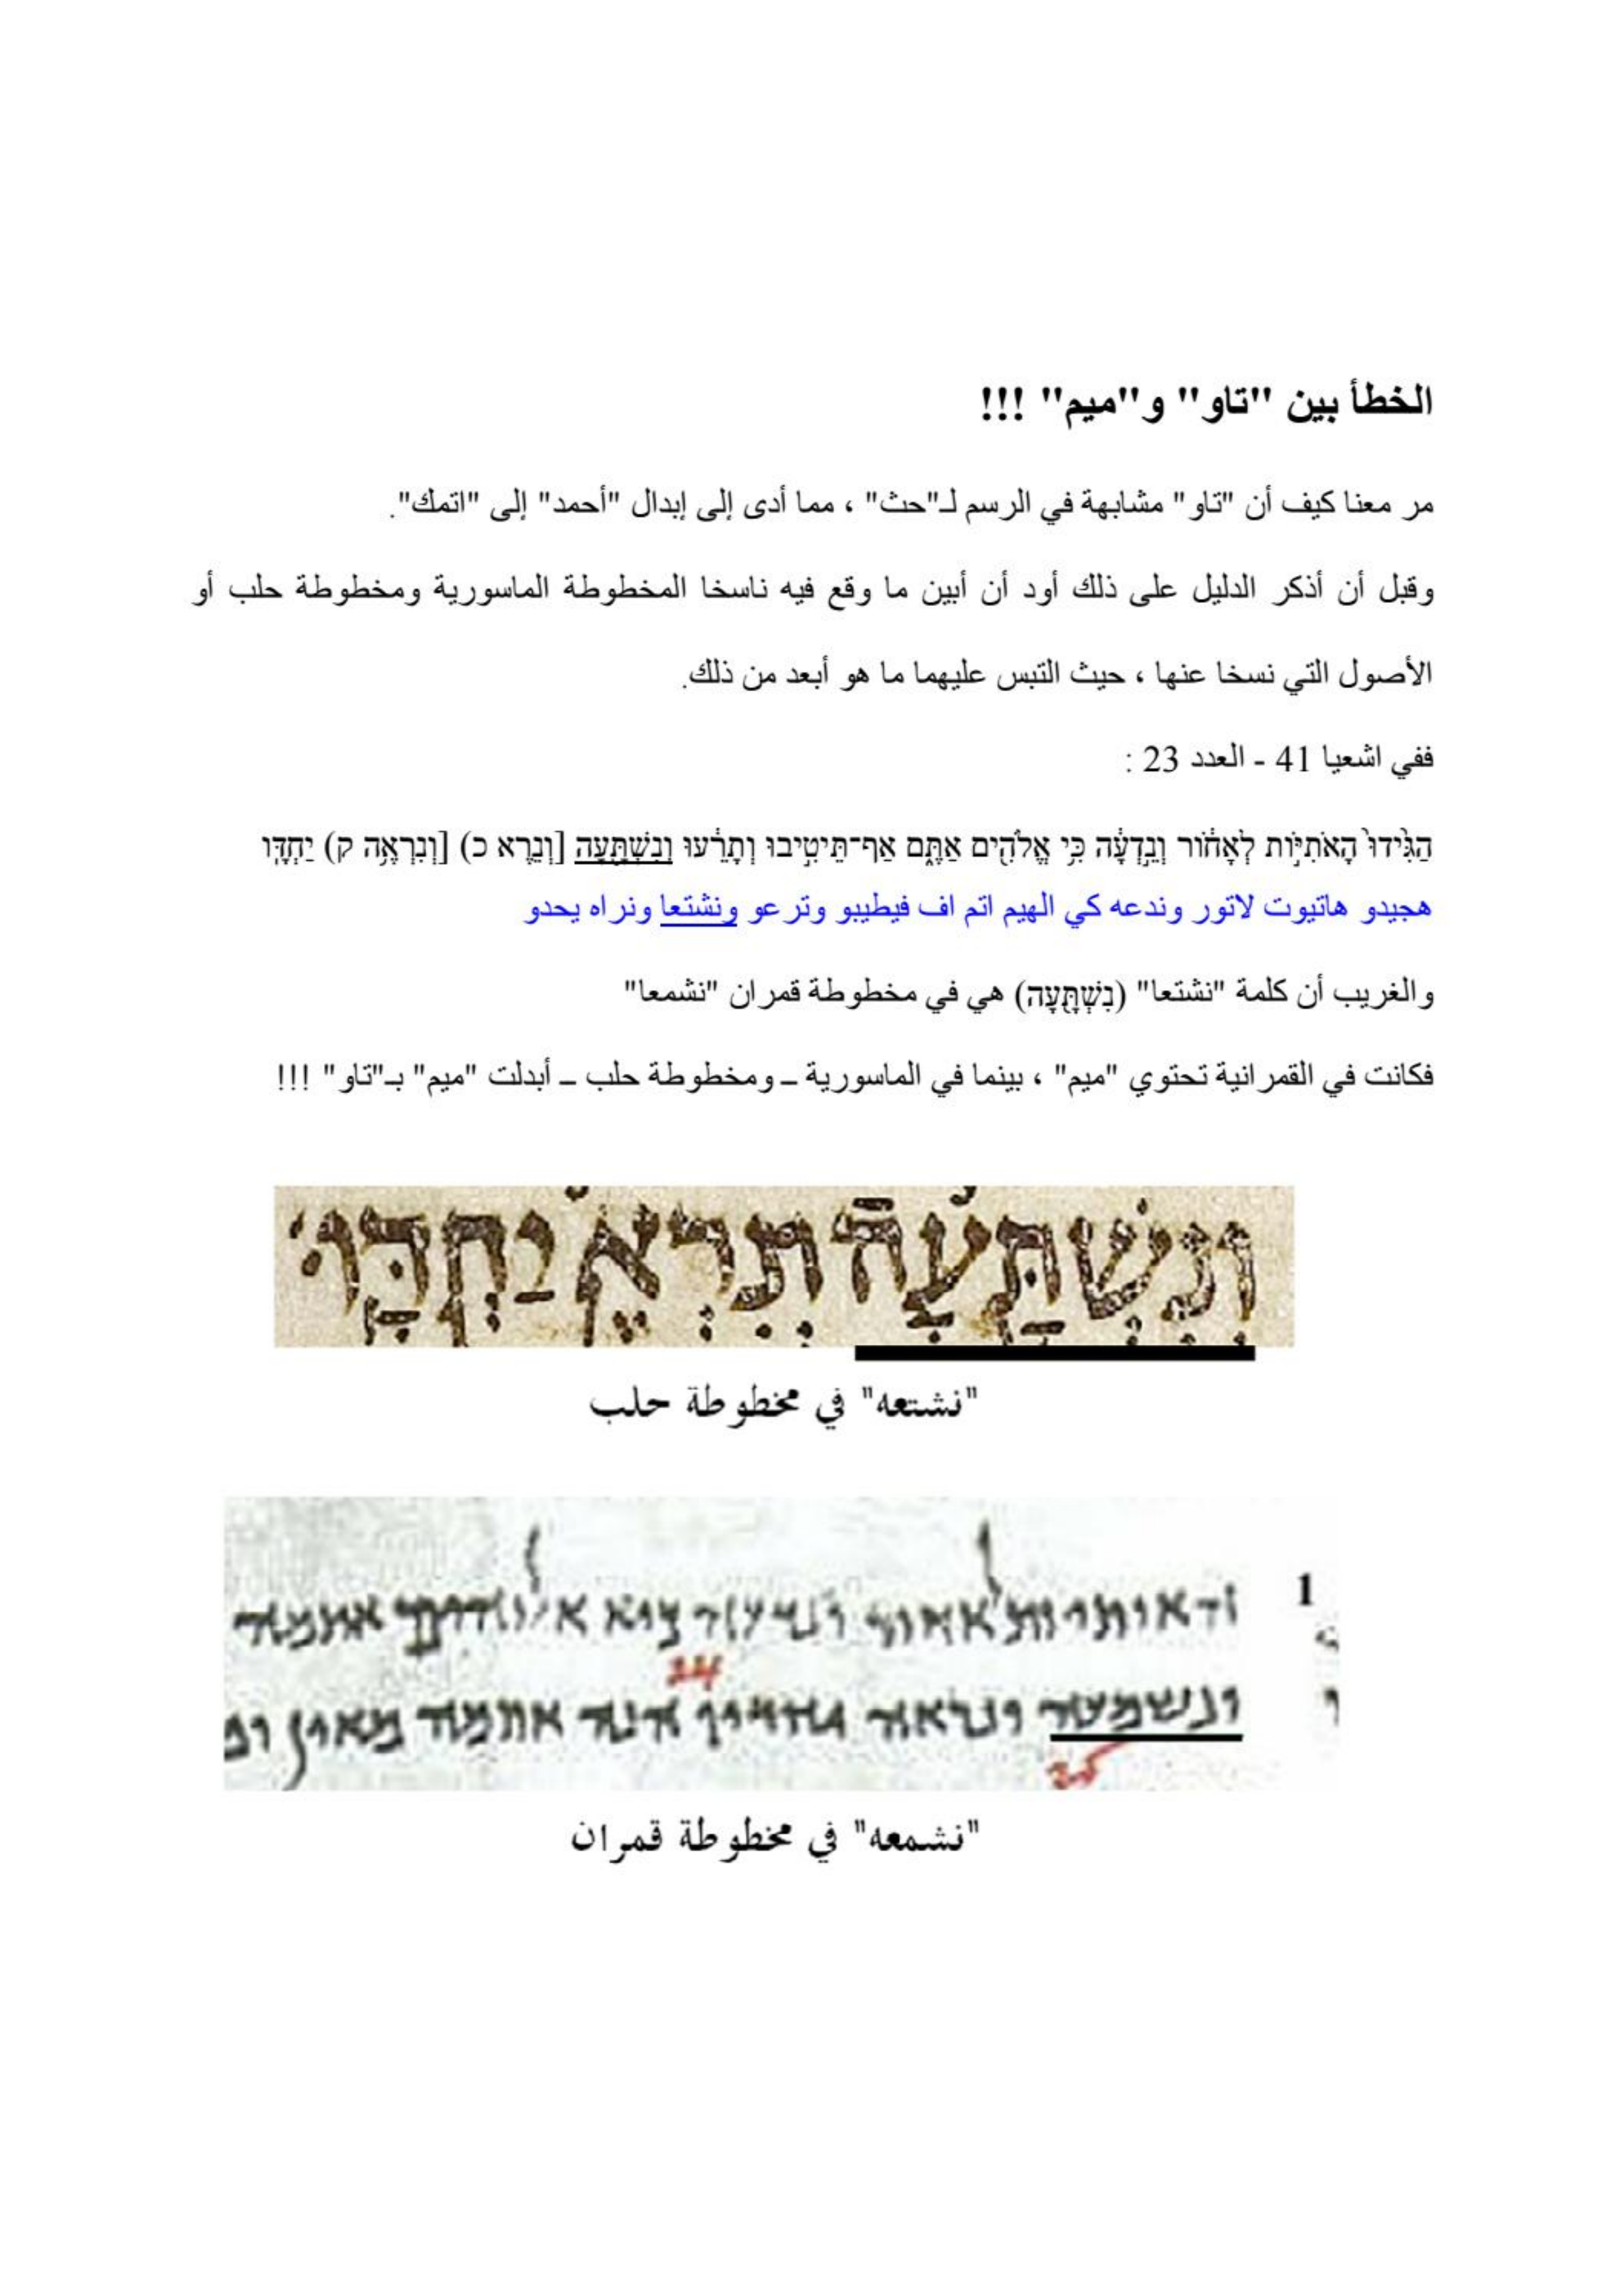 الخطأ بين "تاو" و"ميم" !!!
مر معنا كيف أن "تاو" مشابهة في الرسم لـ"حث" ، مما أدى إلى إبدال "أحمد" إلى "اتمك".
وقبل أن أذكر الدليل على ذلك أود أن أبين ما وقع فيه ناسخا المخطوطة الماسورية ومخطوطة حلب أو
الأصول التي نسخا عنها ، حيث التبس عليهما ما هو أبعد من ذلك.
ففي اشعيا 41 - العدد 23 :
הַגִּ֙ידוּ֙ הָאֹתִיּ֣וֹת לְאָח֔וֹר וְנֵ֣דְעָ֔ה כִּ֥י אֱלֹהִ֖ים אַתֶּ֑ם אַף־תֵּיטִ֣יבוּ וְתָרֵ֔עוּ וְנִשְׁתָּ֖עָה [וְנֵרֶא כ) [וְנִרְאֶ֥ה ק) יַחְדָּֽו
هجيدو هاتيوت لاتور وندعه كي الهيم اتم اف فيطيبو وترعو ونشتعا ونراه يحدو
والغريب أن كلمة "نشتعا" (נִשְׁתָּ֖עָה) هي في مخطوطة قمران "نشمعا"
فكانت في القمرانية تحتوي "ميم" ، بينما في الماسورية – ومخطوطة حلب – أبدلت "ميم" بـ"تاو" !!!
וְנִשְׁתָּעָה תִרְאֶ יַחְדָּו
"نشتعه" في مخطوطة حلب
1
24
ונשמעה ונראה
25
"نشمعه" في مخطوطة قمران